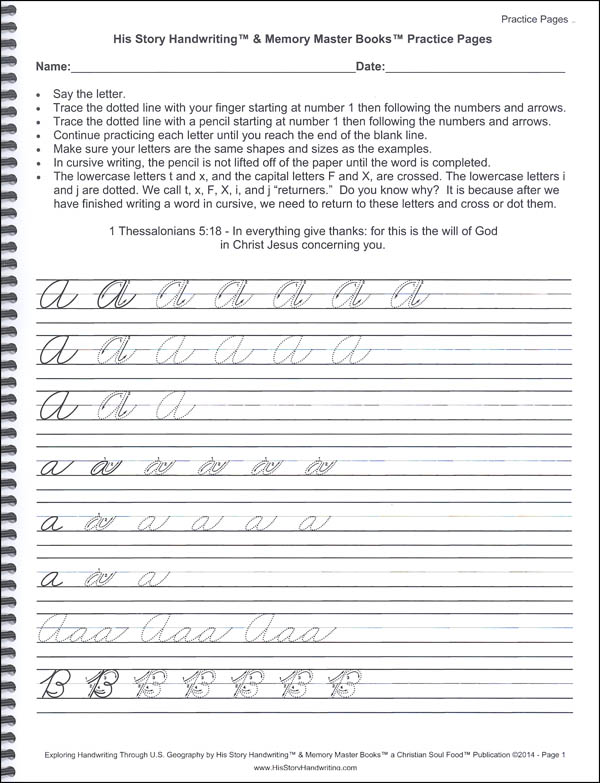 Practice Pages ..
His Story Handwriting™ & Memory Master Books™ Practice Pages
Name:________________________________________Date:__________________________
• Say the letter.
• Trace the dotted line with your finger starting at number 1 then following the numbers and arrows.
• Trace the dotted line with a pencil starting at number 1 then following the numbers and arrows.
• Continue practicing each letter until you reach the end of the blank line.
• Make sure your letters are the same shapes and sizes as the examples.
• In cursive writing, the pencil is not lifted off of the paper until the word is completed.
• The lowercase letters t and x, and the capital letters F and X, are crossed. The lowercase letters i
and j are dotted. We call t, x, F, X, i, and j “returners.” Do you know why? It is because after we
have finished writing a word in cursive, we need to return to these letters and cross or dot them.
1 Thessalonians 5:18 - In everything give thanks: for this is the will of God
in Christ Jesus concerning you.
A A A A A A A
A A A A A A
A A A
a a a a a a
a a a a a a
a a a
Aaa Aaa Aaa
B B B B B B B
Exploring Handwriting Through U.S. Geography by His Story Handwriting™ & Memory Master Books™ a Christian Soul Food™ Publication ©2014 - Page 1
www.HisStoryHandwriting.com